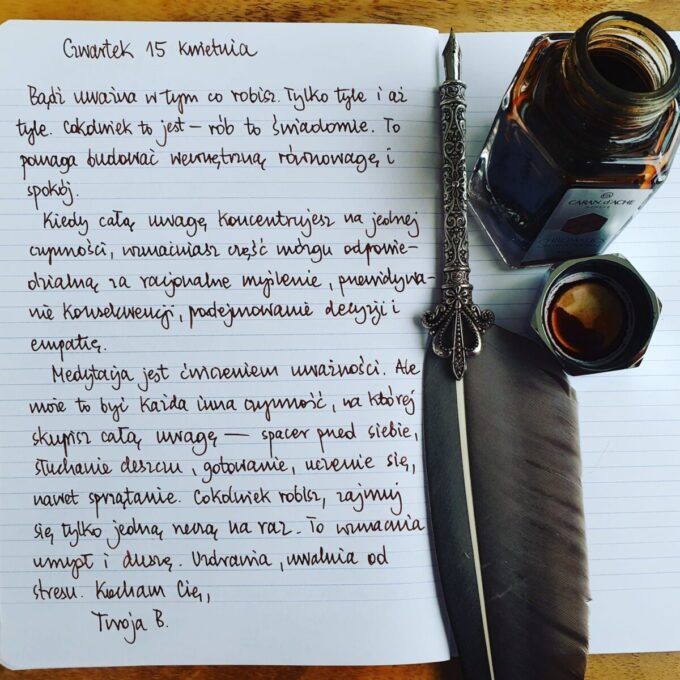 Czwartek 15 kwietnia
Bądź uważna w tym co robisz. Tylko tyle i aż
tyle. Cokolwiek to jest – rób to świadomie. To
pomaga budować wewnętrzną równowagę i
spokój.
Kiedy całą uwagę koncentrujesz na jednej
czynności, wzmacniasz część mózgu odpowie-
dzialną za racjonalne myślenie, przewidywa-
nie konsekwencji, podejmowanie decyzji i
empatię.
Medytacja jest ćwiczeniem uważności. Ale
może to być każda inna czynność, na której
skupisz całą uwagę — spacer przed siebie,
słuchanie deszczu, gotowanie, uczenie się,
nawet sprzątanie. Cokolwiek robisz, zajmij
się tylko jedną rzeczą na raz. To wzmacnia
umysł i duszę. Uzdrawia, uwalnia od
stresu. Kocham Cię,
Twoja B.
CARAN d'ACHE